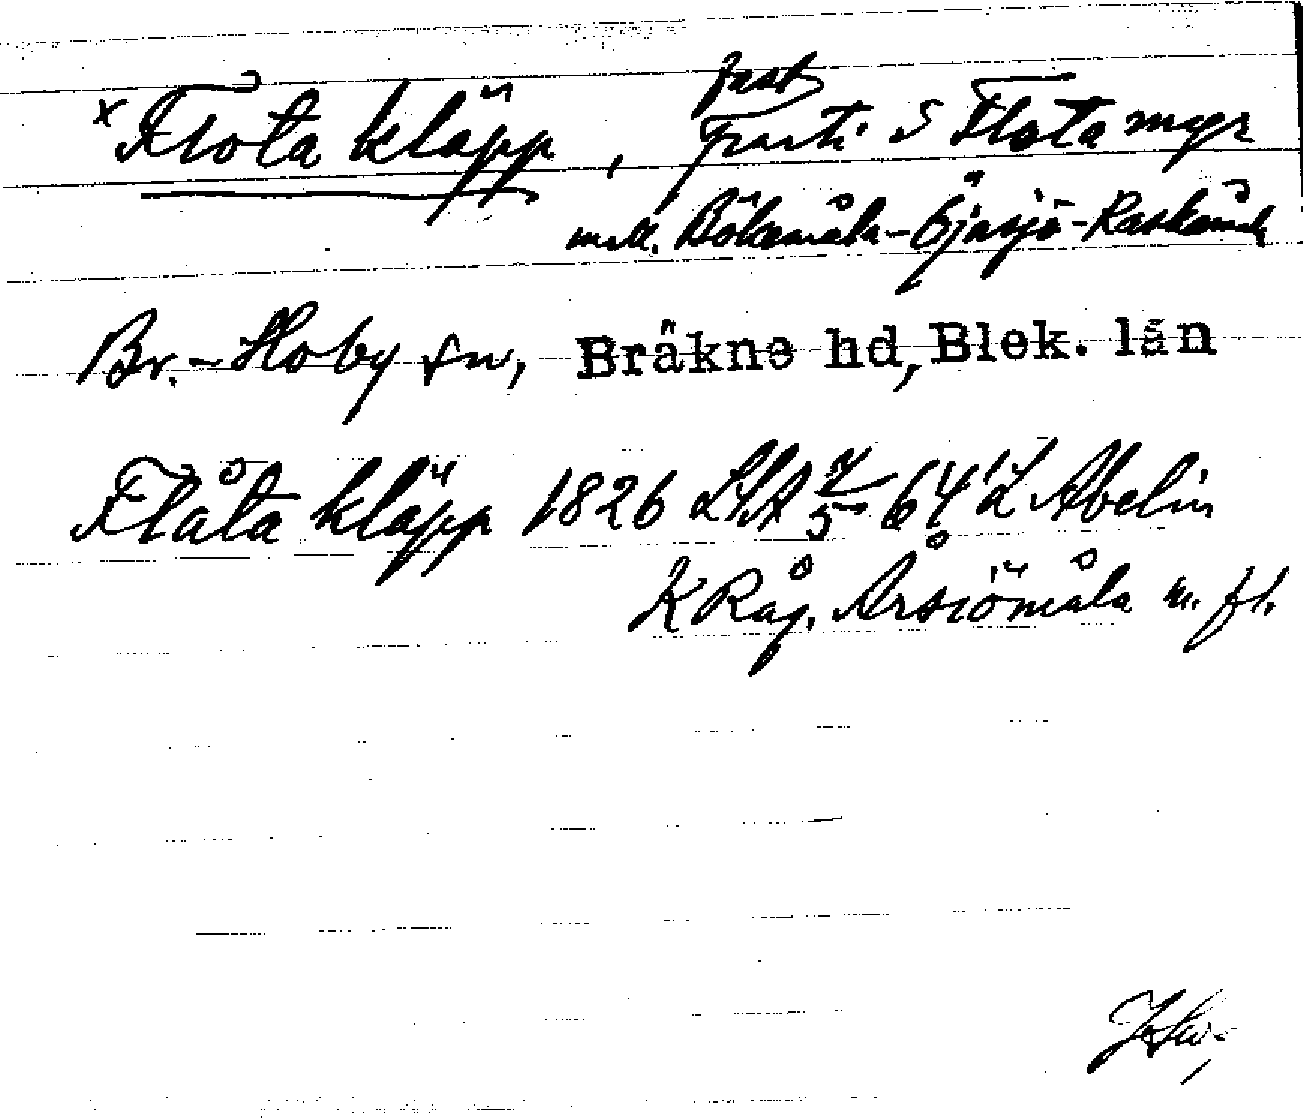 x Flota kläpp, fast
parti i Flota myr
mell. Bökemåla-Öjasjö-Raskamåla
Br.-Hoby sn, Bräkne hd, Blek. län
Flåta kläpp 1826 LSA 64 L Abelin
K Råg. Årsiömåla m. fl.